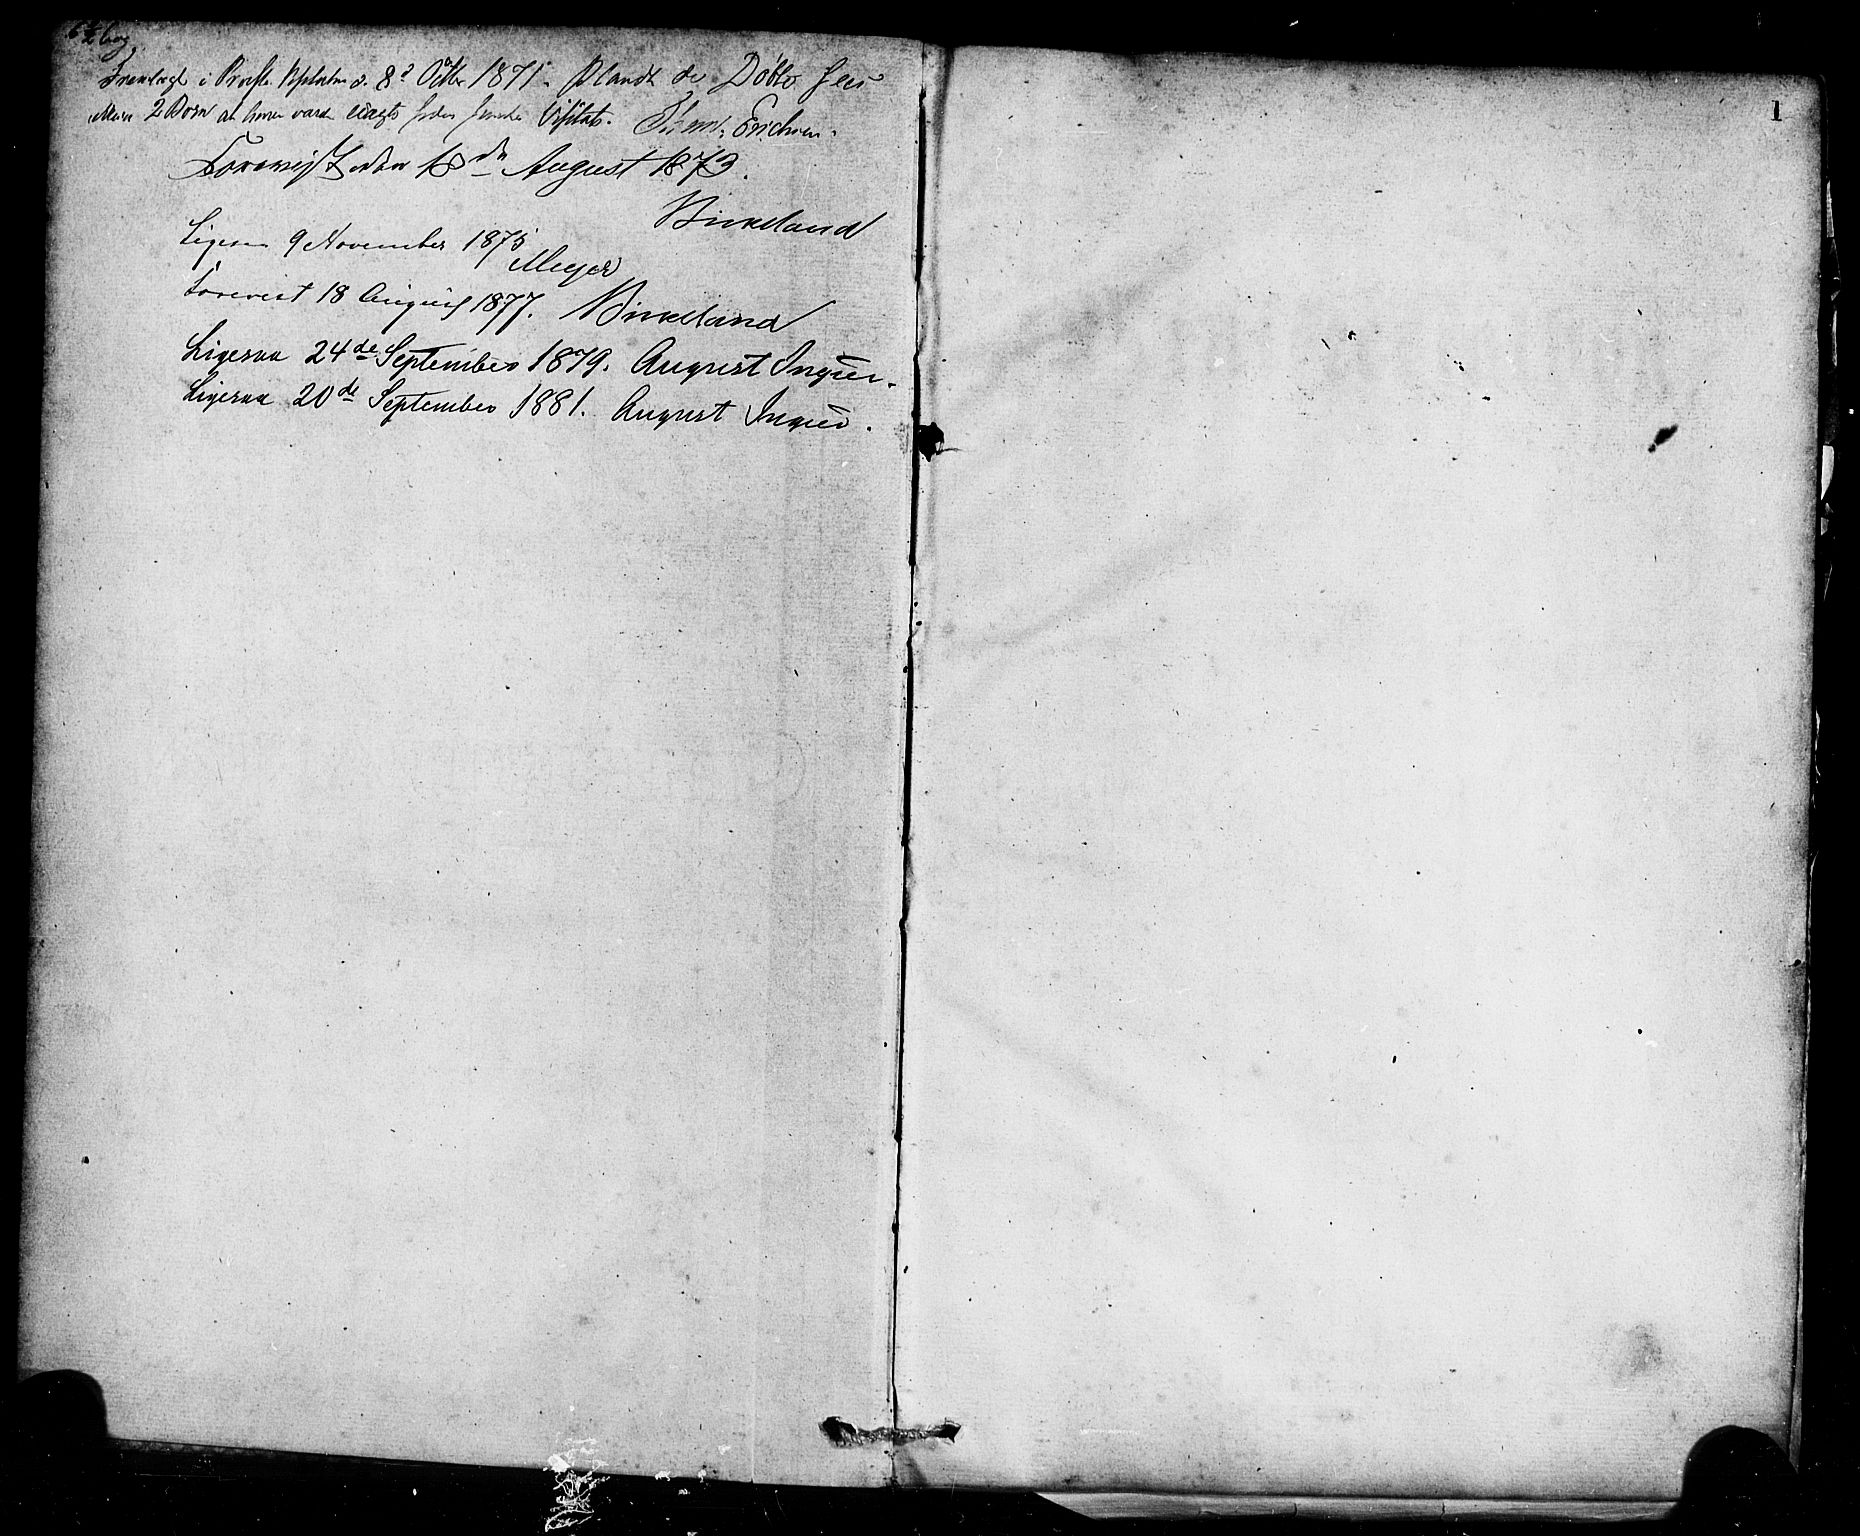 Fremlagt i Provste Visitatsen d. 8de Octbr 1871. Blandt de Døbte
2 Børn at have været siden Visitats. Erichsen.
Forevist den 18de August 1873.
Birkeland
Ligesaa 9 November 1875
Meyer
Forevist 18 August 1877. Birkeland
Ligesaa 24de September 1879. August Inguer.
Ligesaa 20de September 1881. August Inguer.
1